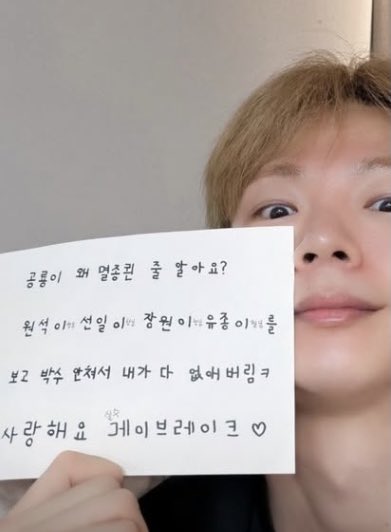 공룡이 왜 멸종된 줄 알아요?
원석이형 선일이형 장원이형 유종이형님을
보고 박수 안쳐서 내가 다 없애버림ㅋ
사랑해요 데이브레이크 ♡